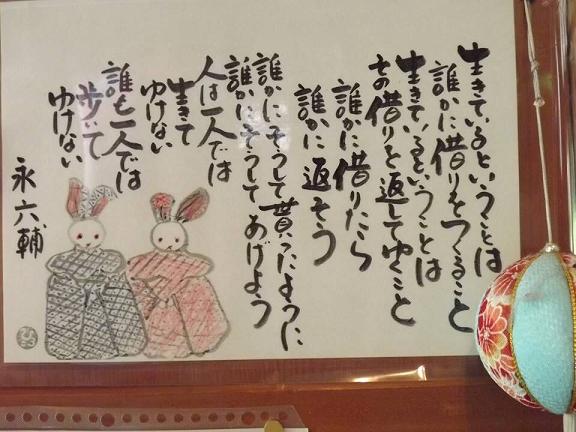 生きているということは
誰かに借りをつくること
生きているということは
その借りを返してゆくこと
誰かに借りたら
誰かに返そう
誰かにそうして貰ったように
誰かにそうしてあげよう
人は一人では
生きて
ゆけない
誰も一人では
歩いて
ゆけない
永六輔